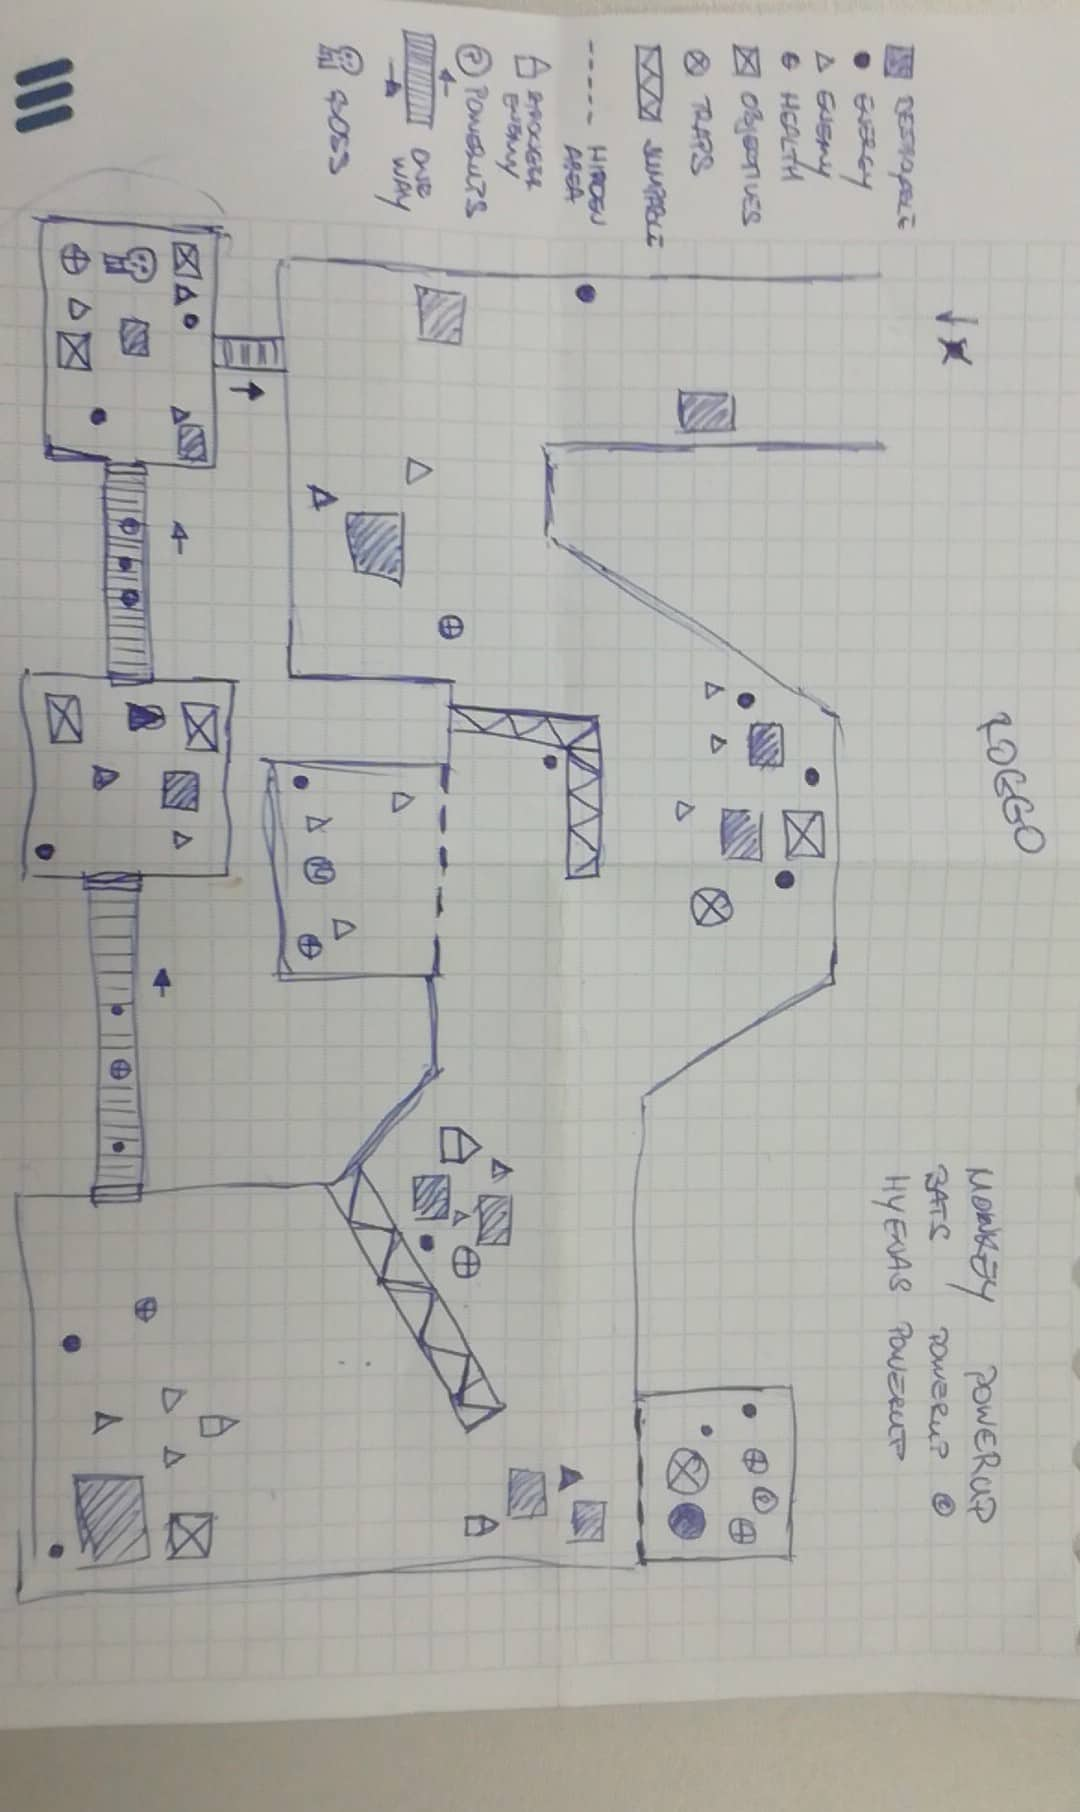 ENERGY
ENEMY
HEALTH
OBJECTIVES
TRAPS
JUMPABLE
HIDDEN
AREA
ENEMY
P POWERUPS
ONE
WAY
BOSS
MONKEY POWERUP
BATS POWERUP
HYENAS POWERUP